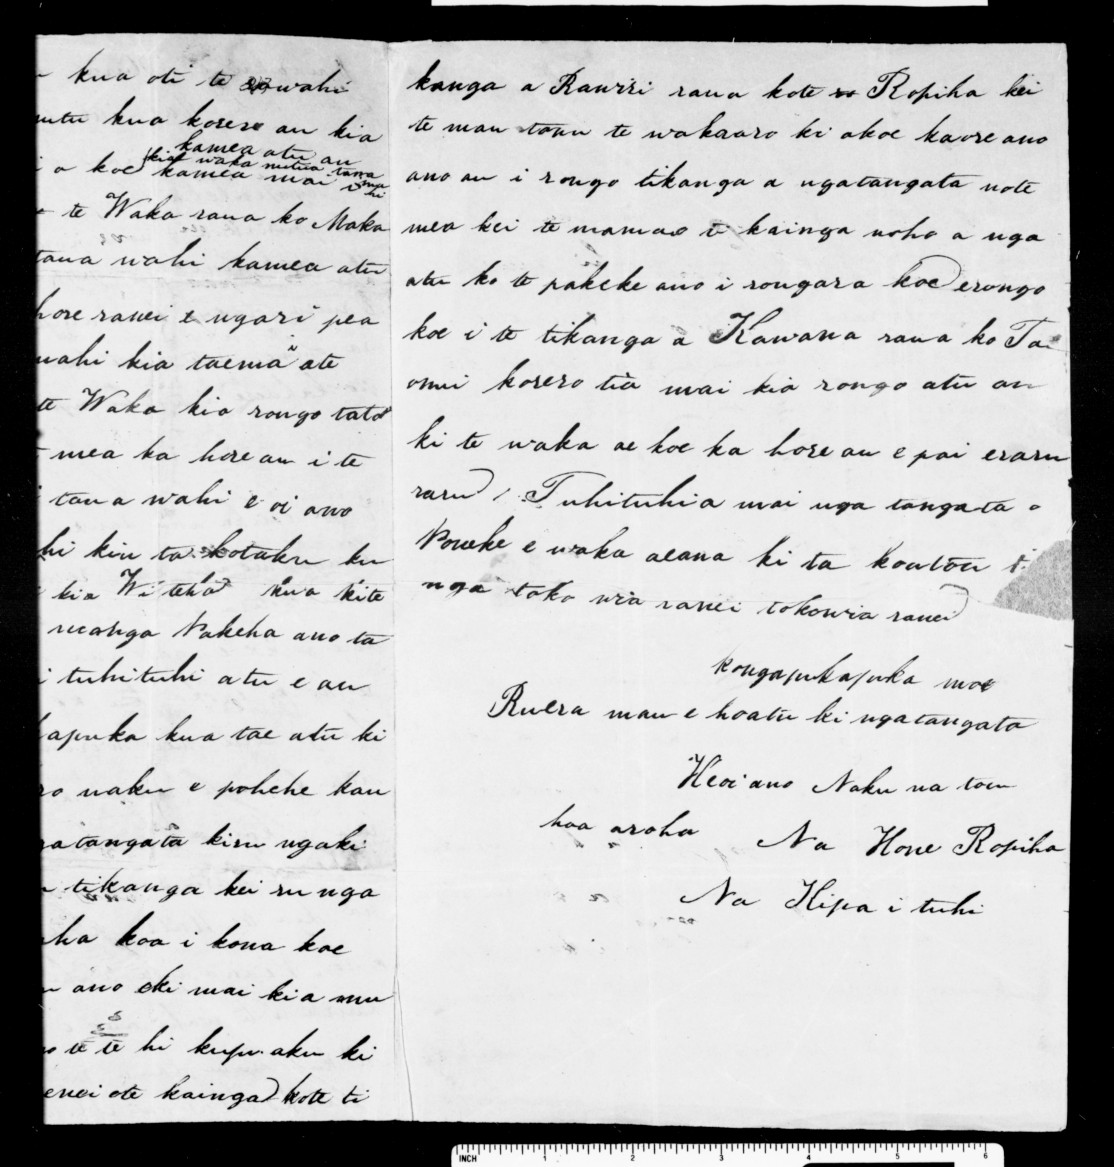 kua oti te wahi
mutu kua korero au kia
kamea atu au
kia waka mutua tana
wa
hi
o koe kamea mai i
te Waka raua ko Maka
taua wahi kamea atu
hore ranei e ngari pea
wahi kia taema ate
te Waka kia rongo tatou
mea ka hore au i te
taua wahi e oi ano
hi kiu ta kotuku ku
kia Wi teha kua kite
manga Pakeha ano ta
i tuhituhi atu e au
kapuka kua tae atu ki
ro naku e pohehe kau
ratangata kiru ngaki
tikanga kei ru nga
ha koa i kona koe
ano eki mai kia mu
te te hi kupu aku ki
enei ote kainga kote ti
kanga a Rawiri raua kote Ropiha kei
te mau tonu te wakaaro ki akoe kaore ano
ano au i rongo tikanga a ngatangata note
mea kei te mamao te kainga noho a nga
atu ko te pakeke ano i rongara koe erongo
koe i te tikanga a Kawana raua ko Tai
onui korero tia mai kia rongo atu au
ki te waka ae koe ka hore au e pai eraru
raru / Tuhituhia mai nga tangata o
Poneke e waka aeana ki ta koutou i
nga toko wia ranei tokowia ranei
kongapukapuka moe
Ruera mau e hoatu ki ngatangata
Heoi ano Naku na tou
hoa aroha Na Hone Ropiha
Na Hipa i tuhi
INCH 1 2 3 4 5 6